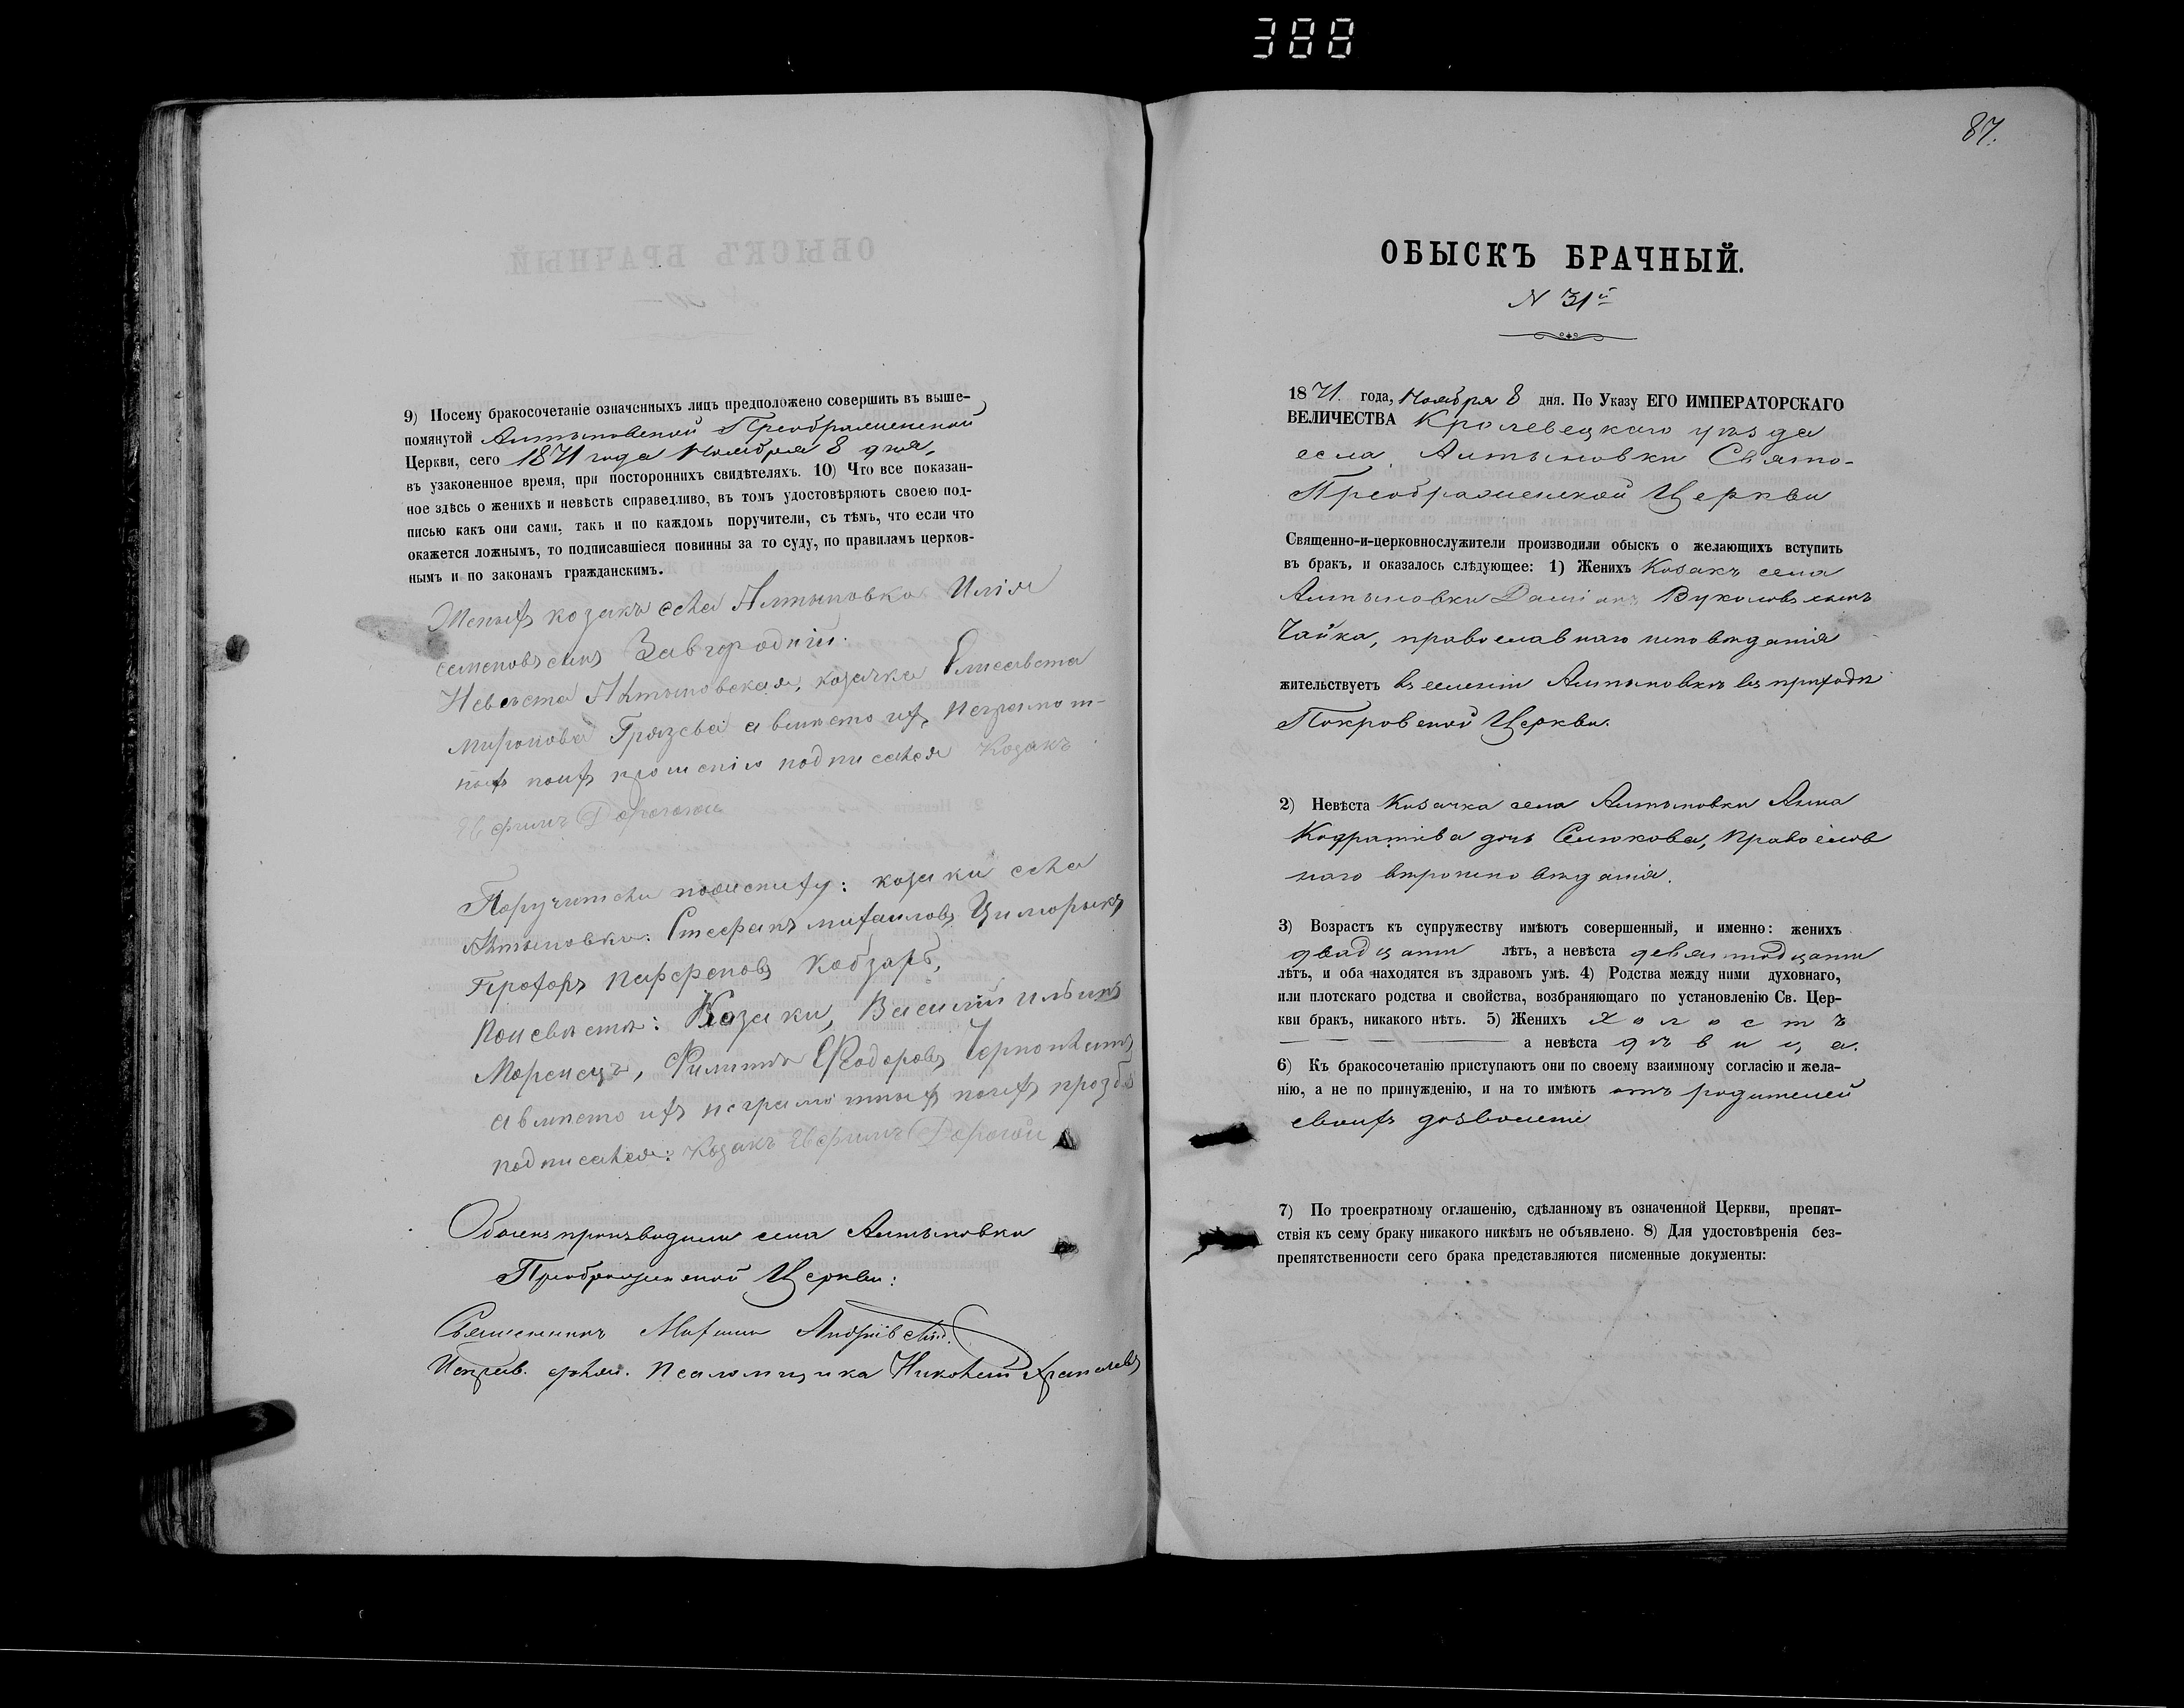 388
9) Посему бракосочетаніе означенныхъ лицъ предположено совершить въ выше-
помянутой Алтыновской Преображенской
Церкви, сего 1871 года Ноября 8 дня,
въ узаконенное время, при постороннихъ свидѣтеляхъ. 10) Что все показан-
ное здѣсь о женихѣ и невѣстѣ справедливо, въ томъ удостовѣряютъ своею под-
писью какъ они сами, такъ и по каждомъ поручители, съ тѣмъ, что если что
окажется ложнымъ, то подписавшіеся повинны за то суду, по правиламъ церков-
нымъ и по законамъ гражданскимъ.
Женихъ козакъ села Алтыновки Илія
семеновъ сынъ Завгородній.
Невѣста Алтыновская, козачка Елисавета
Миронова Грязева а вмѣсто ихъ неграмот-
ныхъ поихъ прошенію подписался Козакъ
Ефимъ Дорогой
Поручители поженихѣ: козаки села
Алтыновки: Стефанъ михаиловъ Циморыкъ
Прохоръ парфеновъ Кобзарь,
Поневѣстѣ: Козаки, Василій ильинъ
Моренецъ, Филиппъ Федоровъ
а вмѣсто ихъ неграмотныхъ поихъ прозбѣ
подписался: Козакъ Ефимъ Дорогой
Обыскъ производили села Алтыновки
Преображенской Церкви:
Священникъ Андріевскій.
Исправ. долж. Псаломщика Николай
87.
ОБЫСКЪ БРАЧНЫЙ.
N 31й
1871. года, Ноября 8 дня. По Указу ЕГО ИМПЕРАТОРСКАГО
ВЕЛИЧЕСТВА Кролевецкаго уѣзда
села Алтыновки Свято-
Преображенской Церкви
Священно-и-церковнослужители производили обыскъ о желающихъ вступить
въ бракъ, и оказалось слѣдующее: 1) Женихъ Козакъ села
Алтыновки Даміанъ Вуколовъ сынъ
Чайка, православнаго исповѣданія
жительствуетъ въ селеніи Алтыновкѣ въ приходѣ
Покровской Церкви.
2) Невѣста Козачка села Алтыновки Анна
Кодратіева дочь Селюкова, Православ
наго вѣроисповѣданія.
3) Возрастъ къ супружеству имѣютъ совершенный, и именно: женихъ
двадцати лѣтъ, а невѣста девятнадцати
лѣтъ, и оба находятся въ здравомъ умѣ. 4) Родства между ними духовнаго,
или плотскаго родства и свойства, возбраняющаго по установленію Св. Цер-
кви бракъ, никакого нѣтъ. 5) Женихъ холостъ
а невѣста дѣвица.
6) Къ бракосочетанію приступаютъ они по своему взаимному согласію и жела-
нію, а не по принужденію, и на то имѣютъ отъ родителей
своихъ дозволеніе
7) По троекратному оглашенію, сдѣланному въ означенной Церкви, препят-
ствія къ сему браку никакого никѣмъ не объявлено. 8) Для удостовѣренія без-
препятственности сего брака представляются писменные документы: